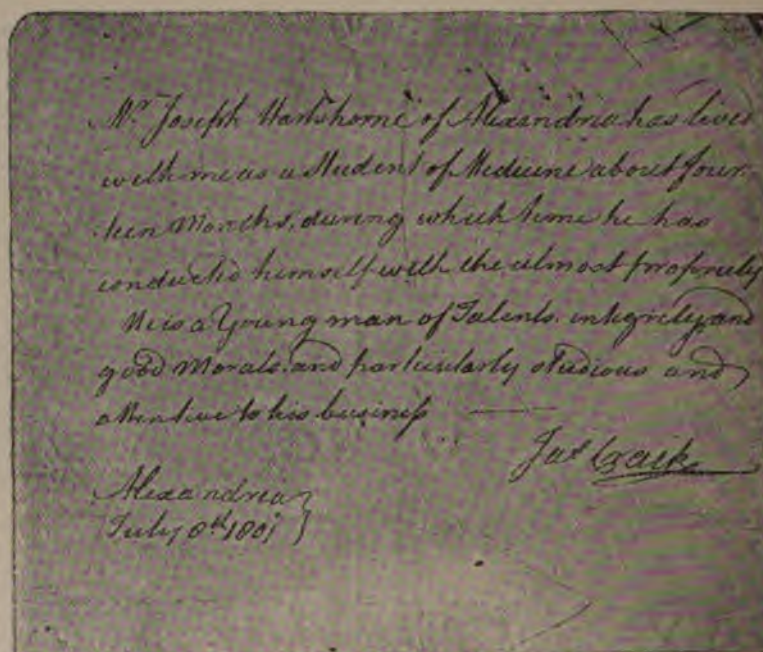 Mr. Joseph Hartshorne of Alexandria has lived
with me as a Student of Medicine about four
teen Months, during which time he has
conducted himself with the utmost propriety
He is a Young man of Talents, integrity and
good Morals, and particularly studious and
attentive to his business
Jas Craik
Alexandria
July 8th 1801